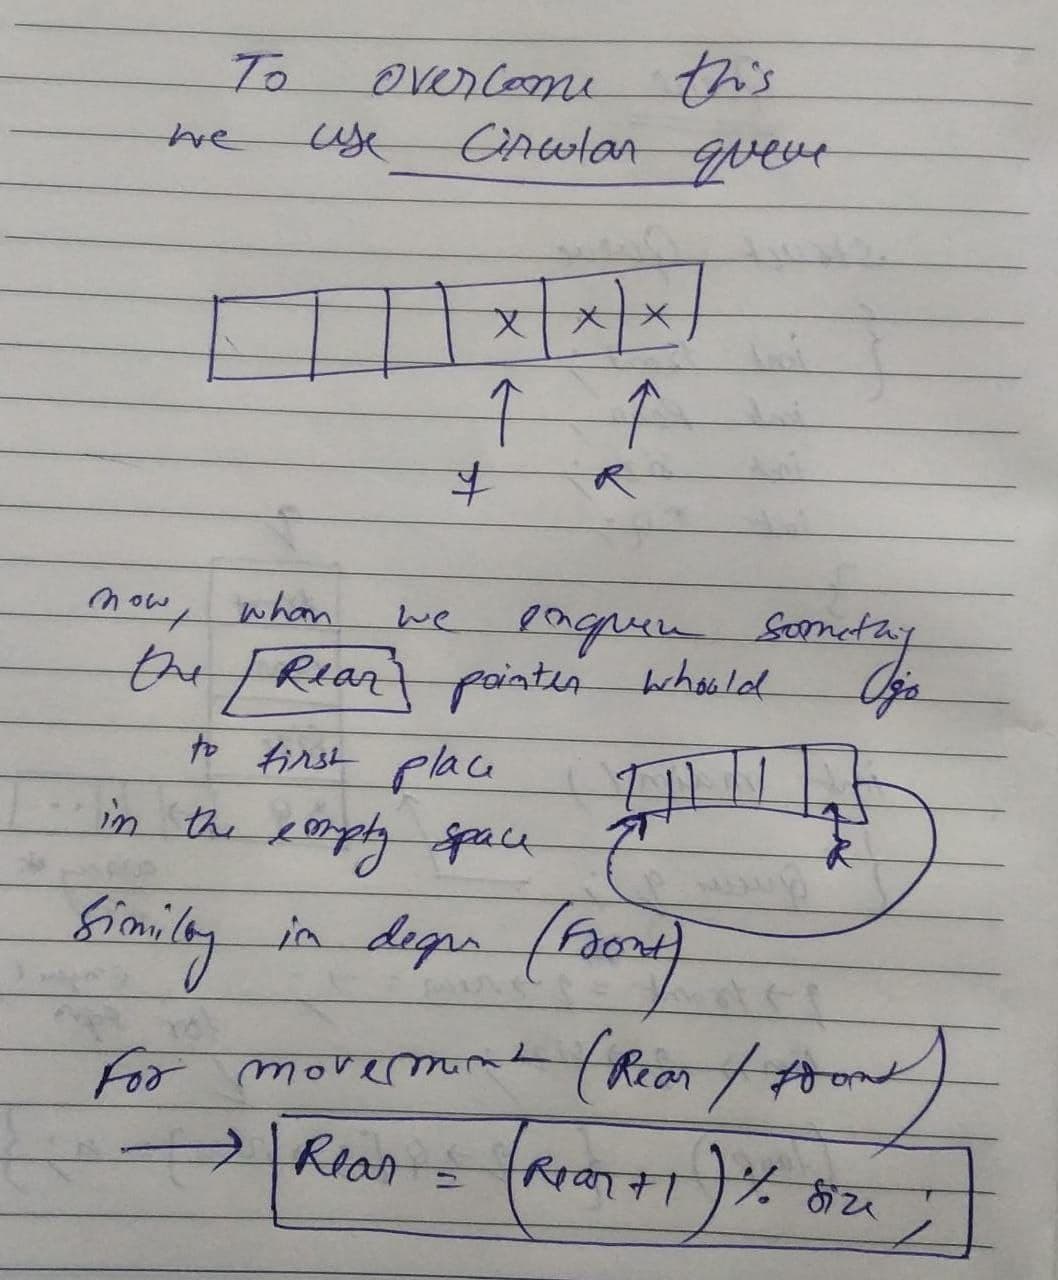 To overcome this
we use Circular queue
x x x
f R
now, when we enqueu somethig
the Rear pointer whould go
to first place
in the empty space
R
Similay in dequ (Front)
For movement (Rear / front)
→ Rear = (Rear+1) % size ;